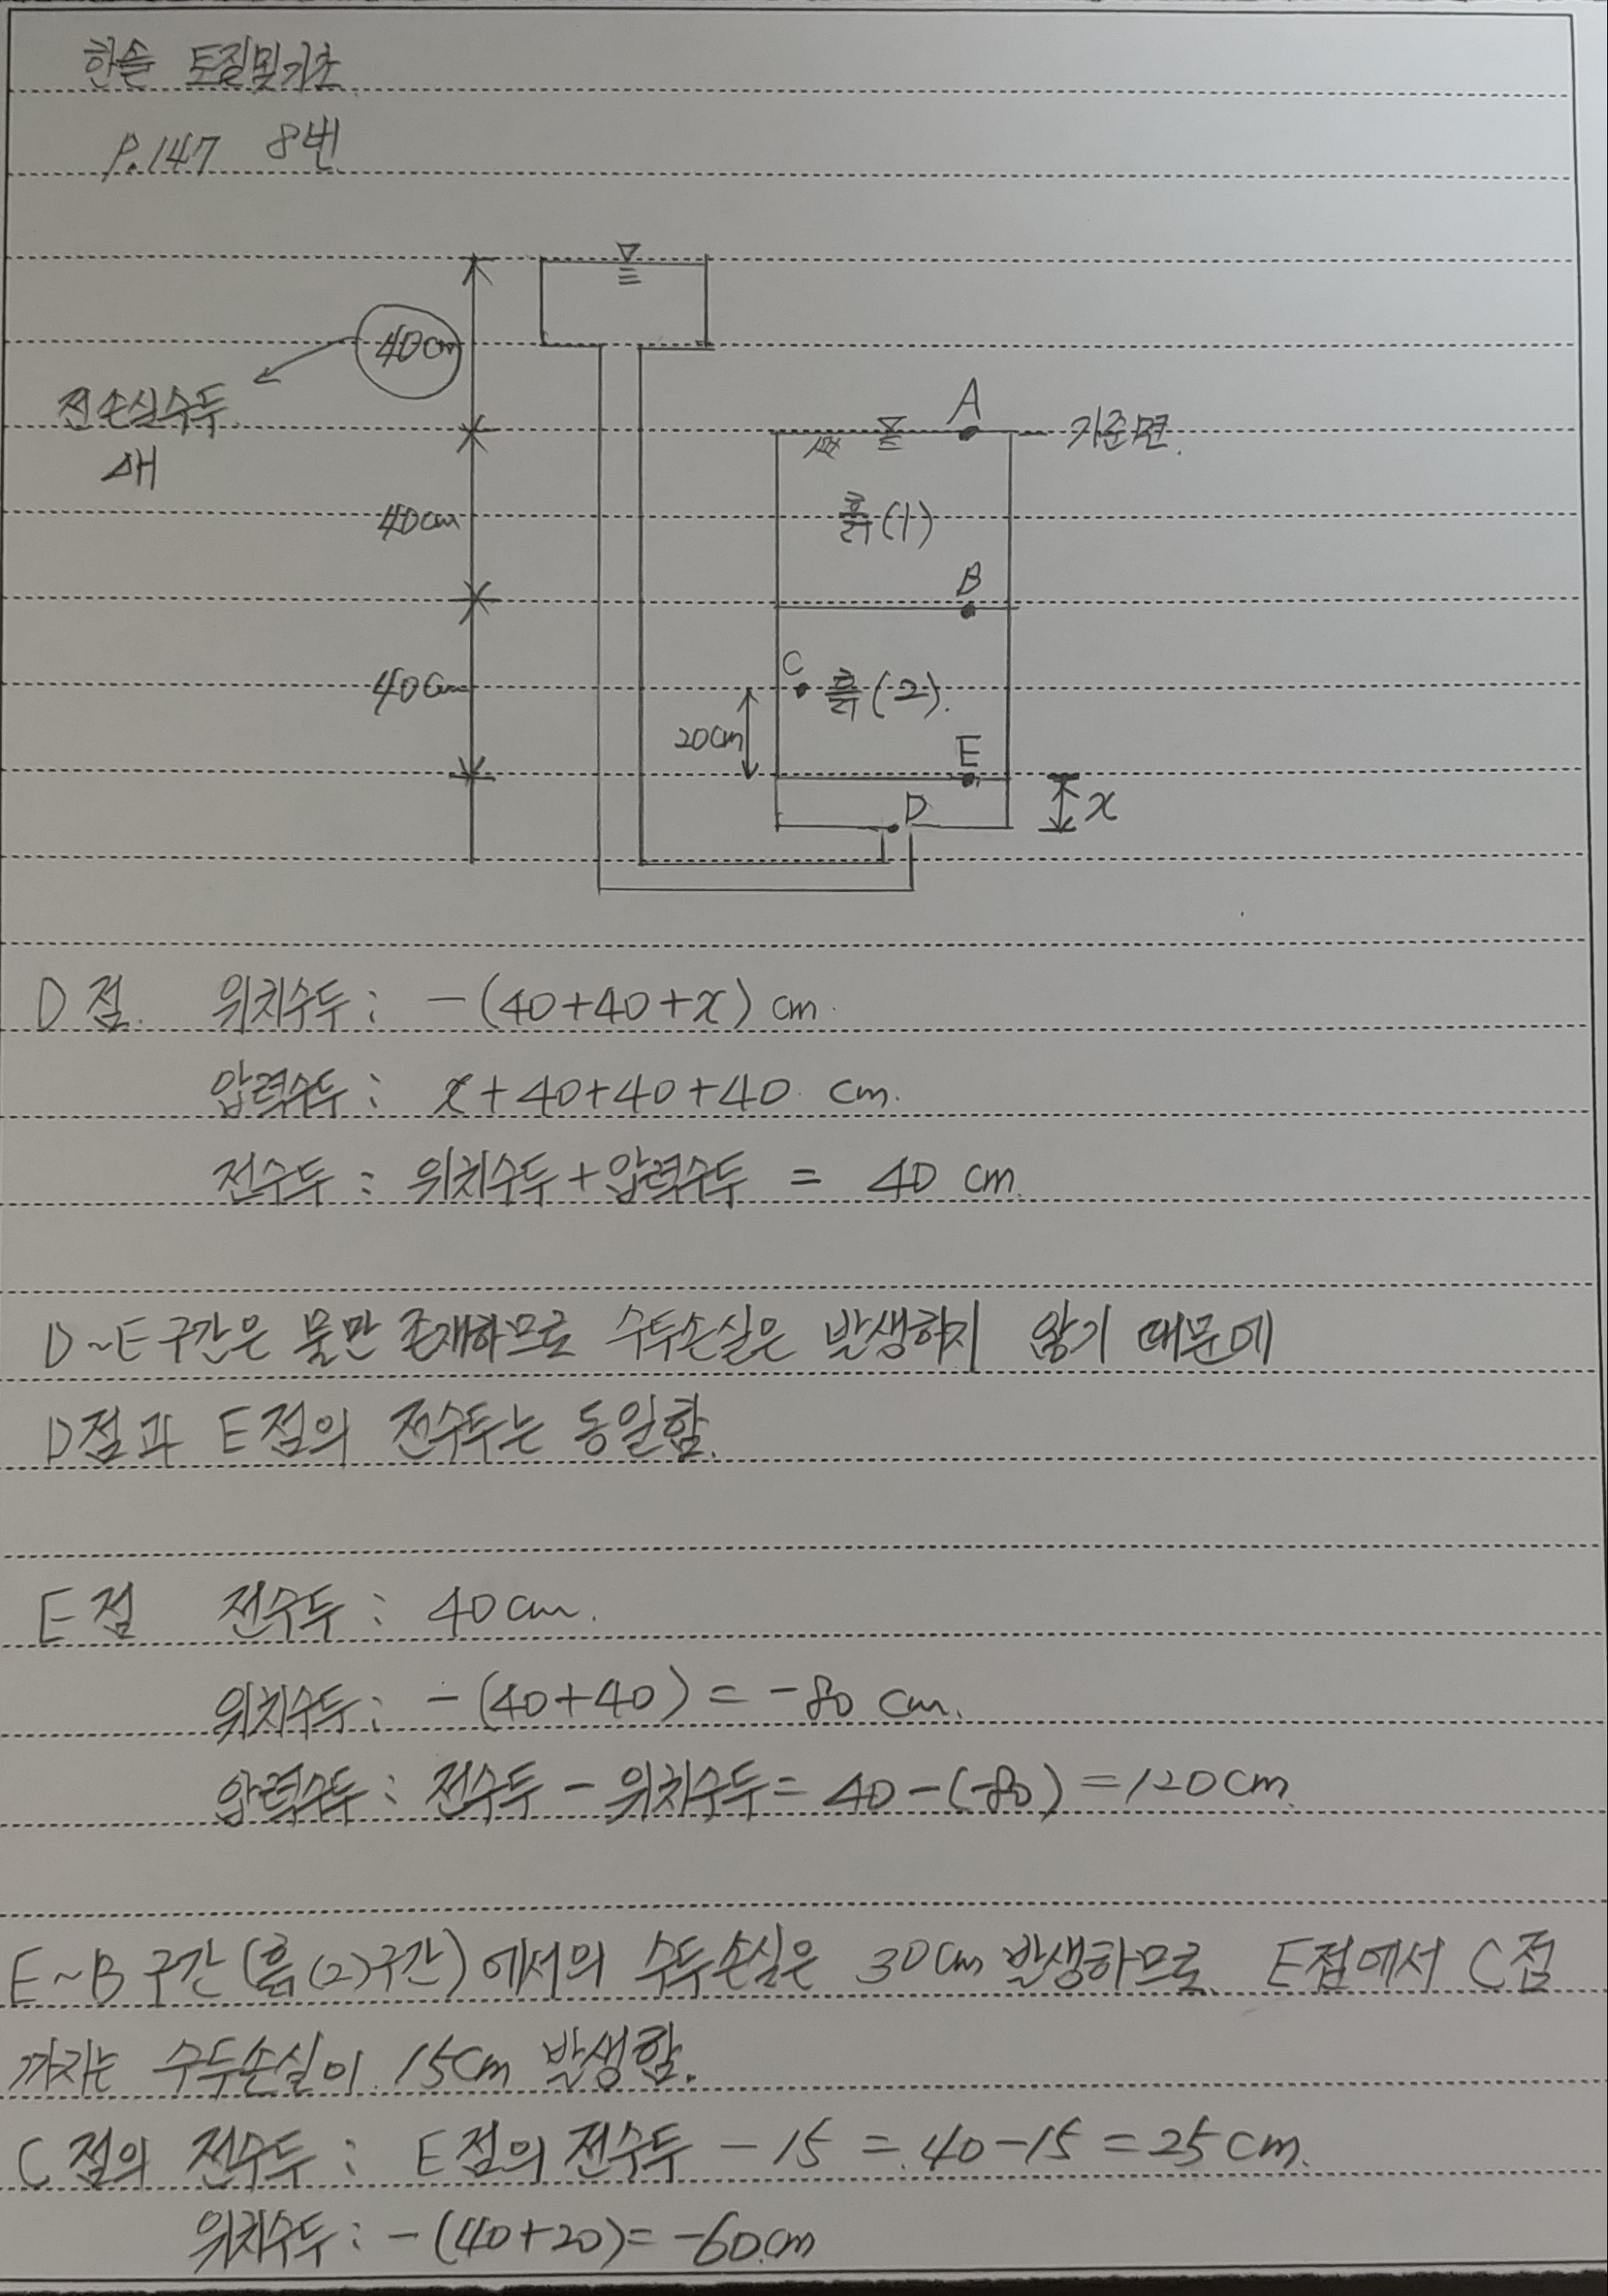 한솔 토질및기초
P.147 8번
40cm
전손실수두
ΔH
A
기준면.
흙(1)
40cm
B
C
흙(2).
40cm
20cm
E
D
x
D점. 위치수두: -(40+40+x) cm.
압력수두: x+40+40+40. cm.
전수두: 위치수두+압력수두 = 40 cm.
D~E구간은 물만 존재하므로 수두손실은 발생하지 않기 때문에
D점과 E점의 전수두는 동일함.
E점 전수두: 40cm.
위치수두: -(40+40)=-80 cm.
압력수두: 전수두 - 위치수두= 40-(-80)=120cm.
E~B구간(흙(2)구간)에서의 수두손실은 30cm 발생하므로. E점에서 C점
까지는 수두손실이 15cm 발생함.
C점의 전수두: E점의 전수두 - 15 = 40-15=25cm.
위치수두: -(40+20)=-60cm